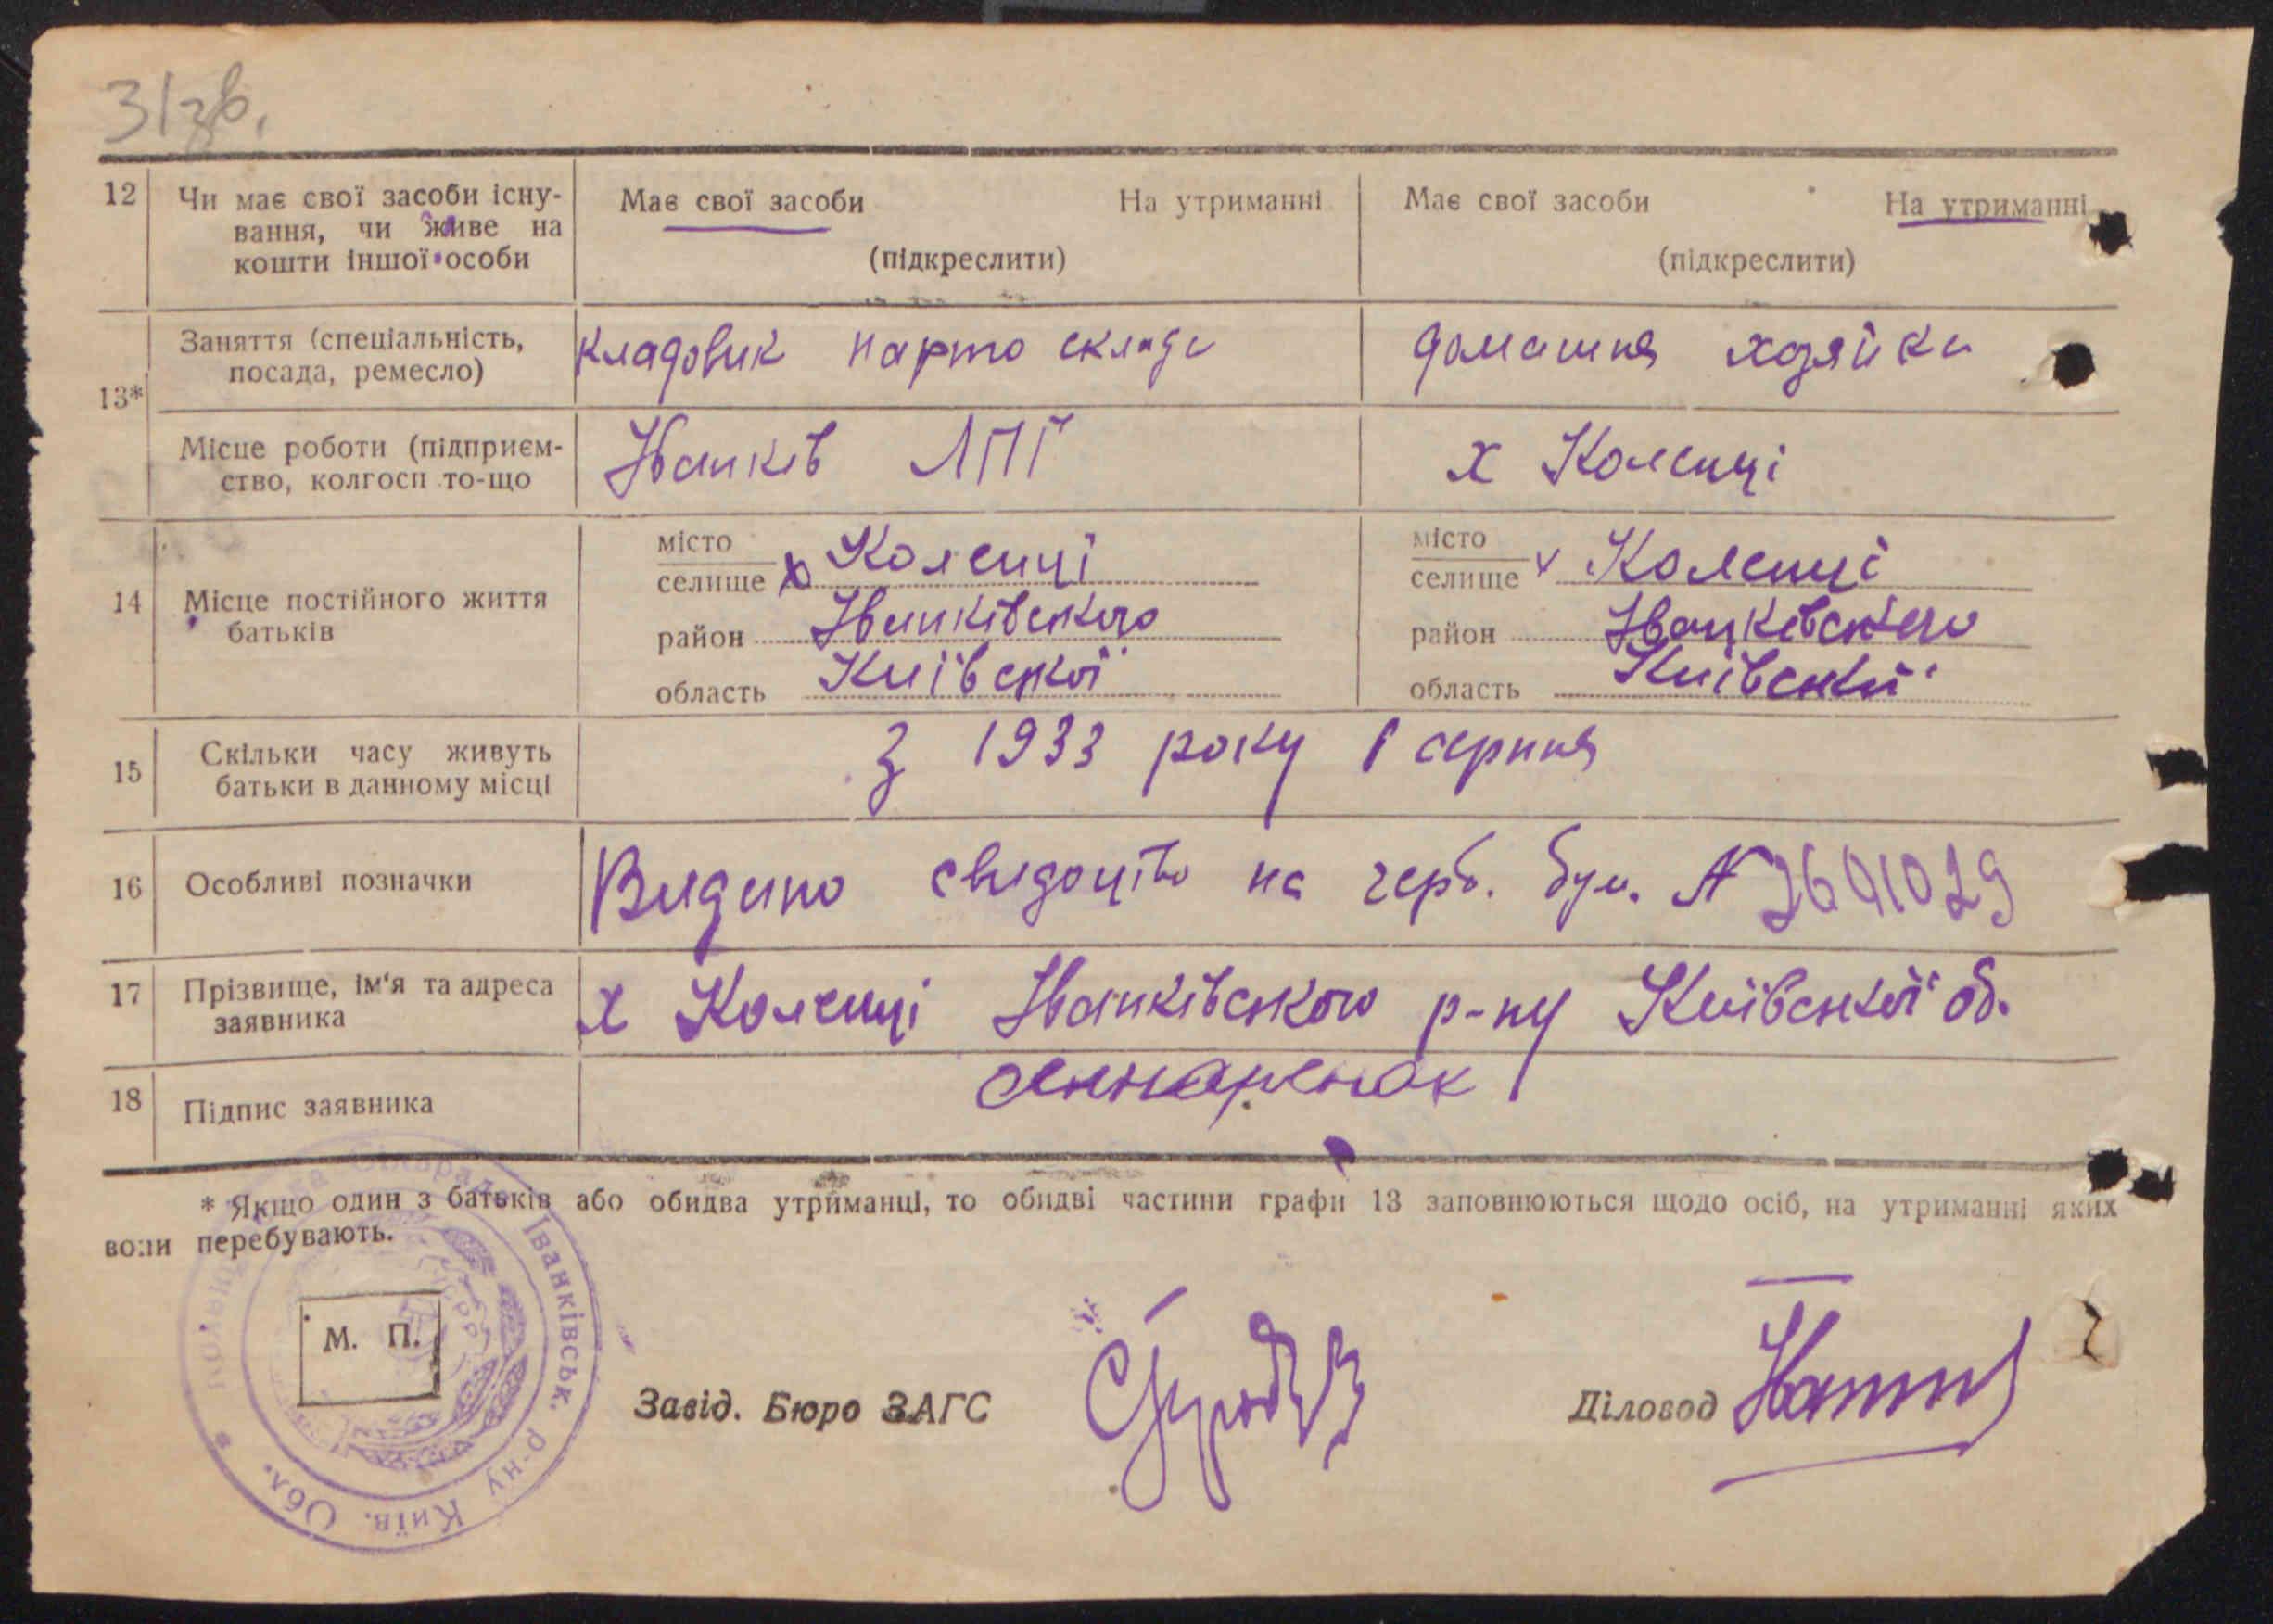 31зв.
12 Чи має свої засоби існу- Має свої засоби На утриманні Має свої засоби На утриманні
вання, чи живе на
кошти іншої особи (підкреслити) (підкреслити)
Заняття (спеціальність, кладовик нарто склада домашня хозяйка
посада, ремесло)
13*
Місце роботи (підприєм- Іванків ЛПГ х Коленці
ство, колгосп то-що
місто х Коленці місто х Коленці
селище селище
14 Місце постійного життя район Іванківського район Іванківського
батьків
область Київської область Київської
15 Скільки часу живуть З 1933 року 1 серпня
батьки в данному місці
16 Особливі позначки Видано свидоцтво на герб. бум. №
17 Прізвище, ім'я та адреса х Коленці Іванківського р-ну Київської об.
заявника
18 Підпис заявника
* Якщо один з батьків або обидва утриманці, то обидві частини графи 13 заповнюються щодо осіб, на утриманні яких
вони перебувають.
М. П.
Завід. Бюро ЗАГС Діловод
Сільрада Іванківськ. р-ну Київ. Обл.